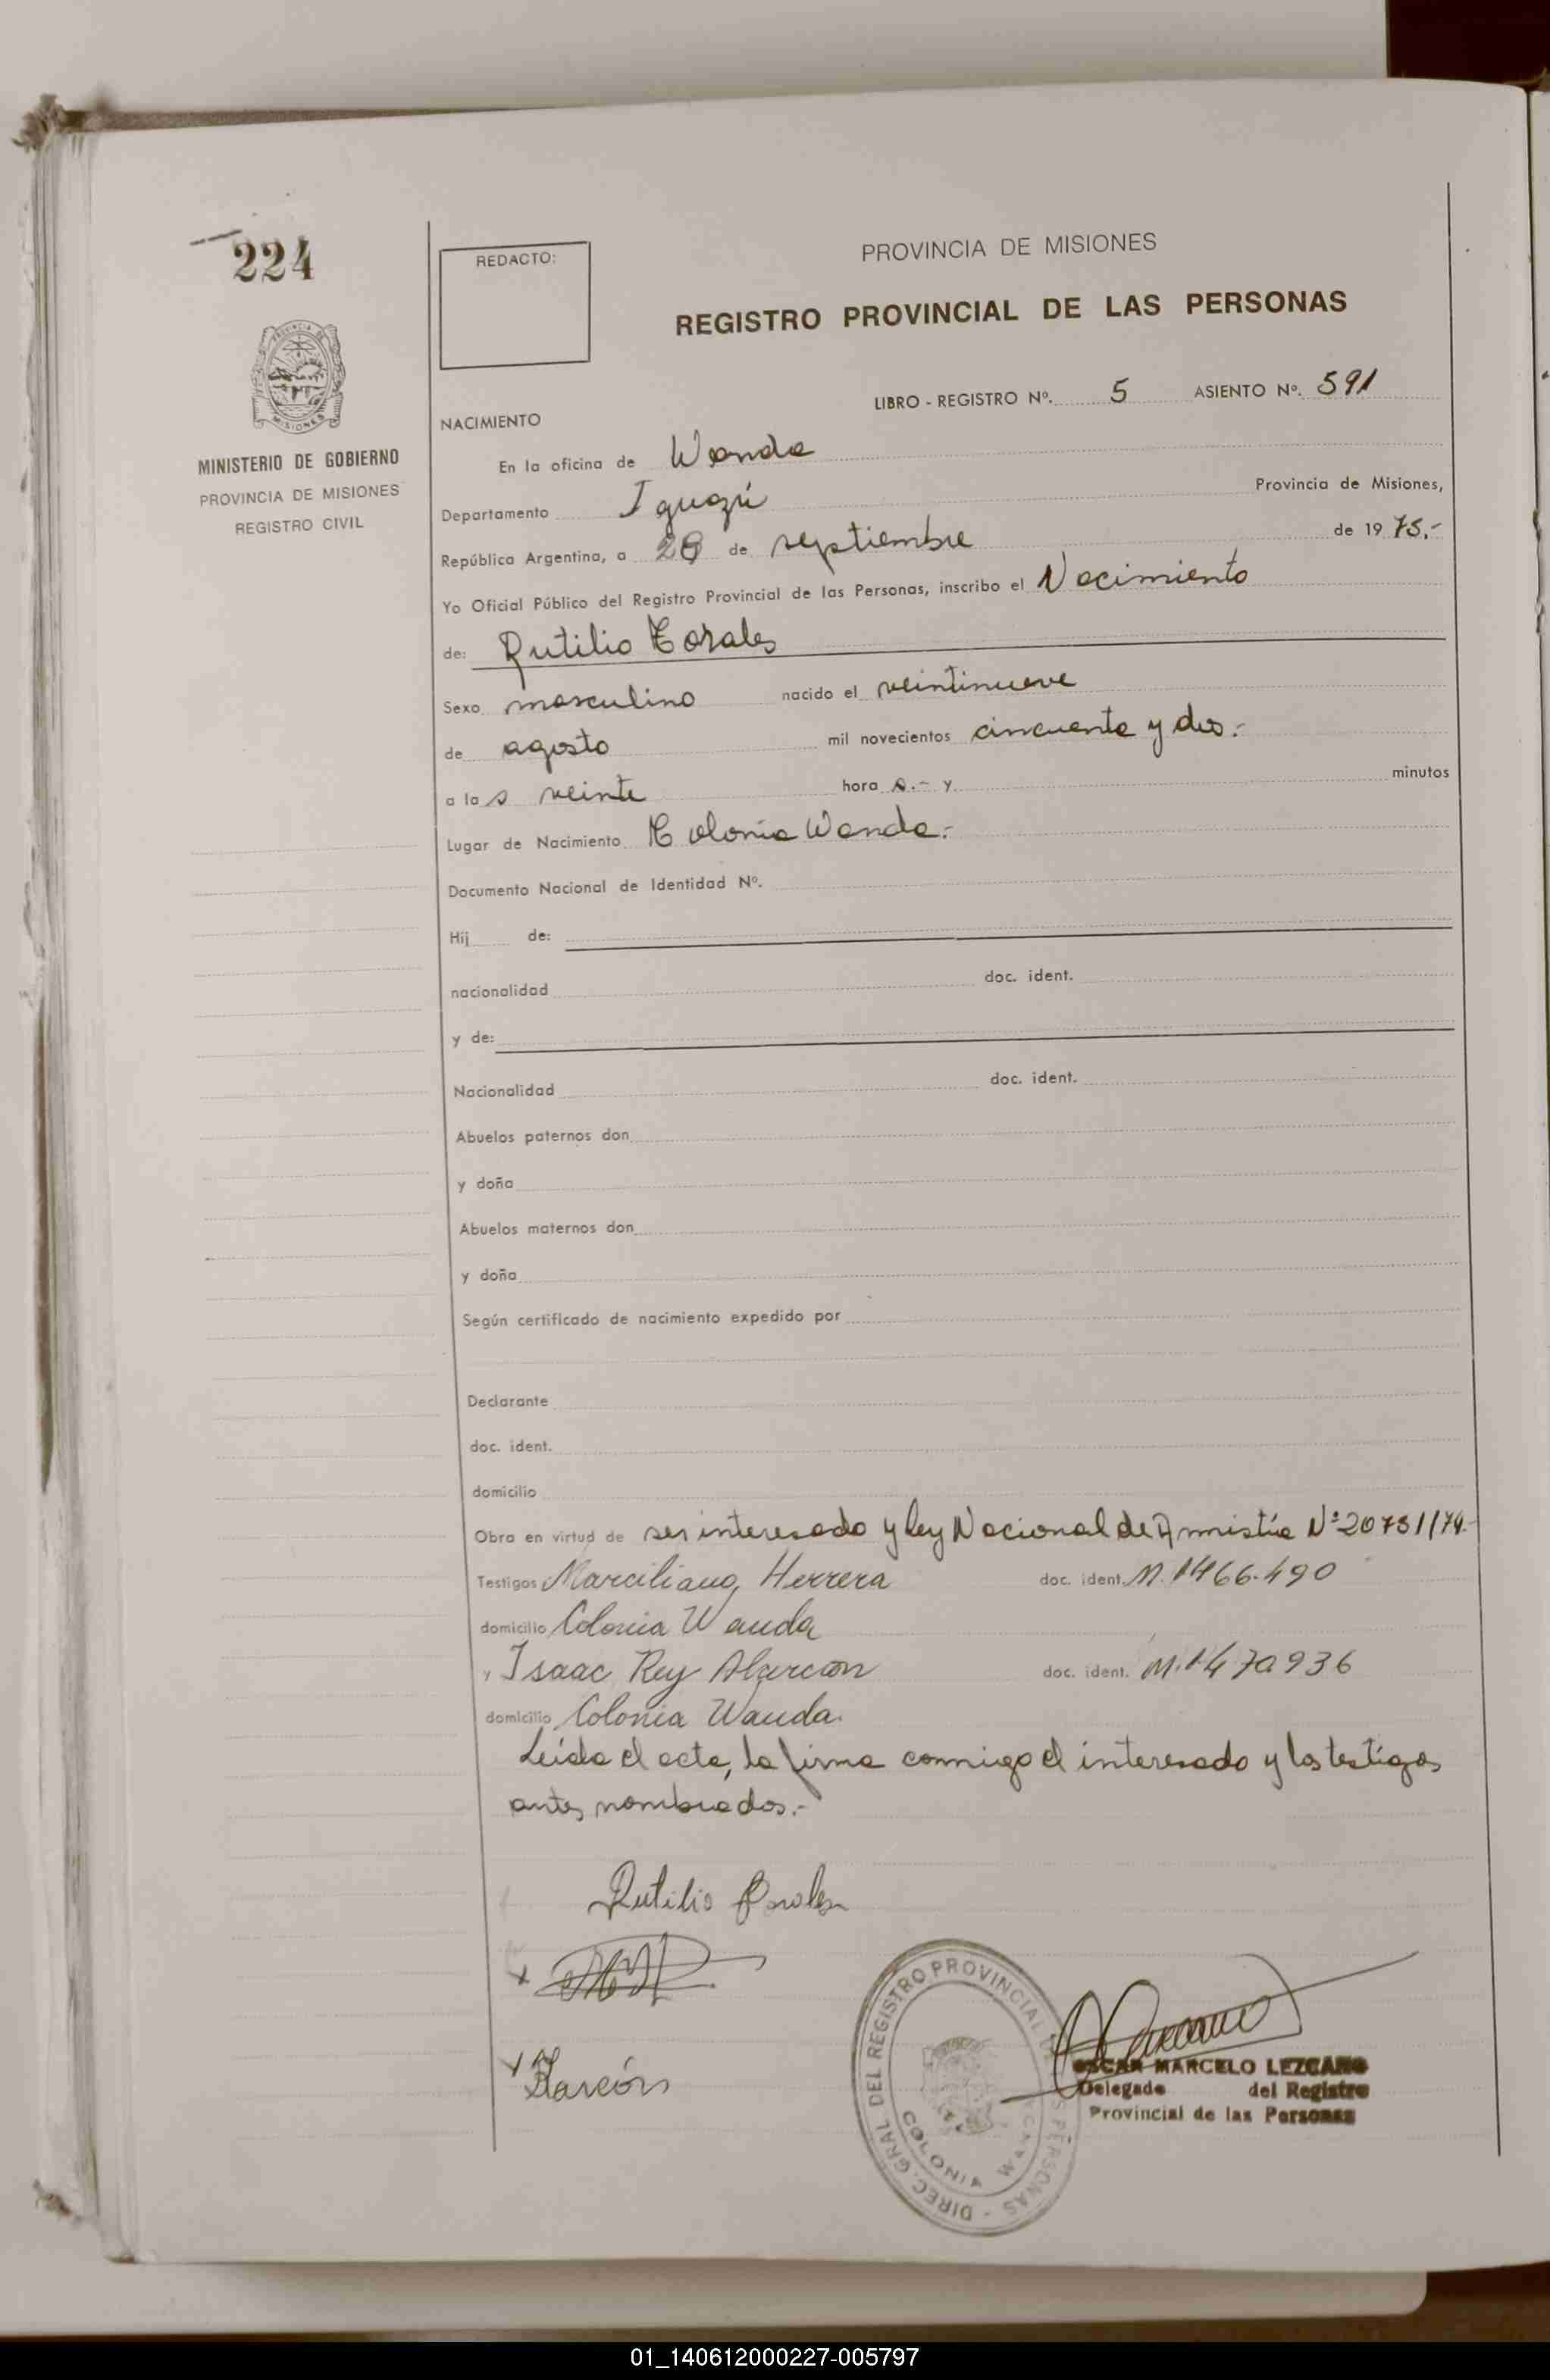 224
PROVINCIA DE MISIONES
MINISTERIO DE GOBIERNO
PROVINCIA DE MISIONES
REGISTRO CIVIL
REDACTO:
PROVINCIA DE MISIONES
REGISTRO PROVINCIAL DE LAS PERSONAS
LIBRO - REGISTRO Nº. 5 ASIENTO Nº. 591
NACIMIENTO
En la oficina de Wanda
Departamento Iguazú Provincia de Misiones,
República Argentina, a de septiembre de 19 75.-
Yo Oficial Público del Registro Provincial de las Personas, inscribo el Nacimiento
de: Rutilio Corales
Sexo masculino nacido el veintinueve
de agosto mil novecientos cincuenta y dos.-
a la s veinte hora s.- y minutos
Lugar de Nacimiento Colonia Wanda.-
Documento Nacional de Identidad Nº.
Hij de:
nacionalidad doc. ident.
y de:
Nacionalidad doc. ident.
Abuelos paternos don
y doña
Abuelos maternos don
y doña
Según certificado de nacimiento expedido por
Declarante
doc. ident.
domicilio
Obra en virtud de ser interesado y ley Nacional de Amnistía Nº 20751/74.-
Testigos Marciliano Herrera doc. ident. M. 1466.490
domicilio Colonia Wanda
y Isaac Rey Alarcon doc. ident. M. 1470936
domicilio Colonia Wanda.
Leída el acta, la firma conmigo el interesado y los testigos
antes nombrados.-
Rutilio
x
x Alarcón
DIREC. GRAL DEL REGISTRO PROVINCIAL DE LAS PERSONAS -
COLONIA WANDA
OSCAR MARCELO LEZCANO
Delegado del Registro
Provincial de las Personas
01_140612000227-005797